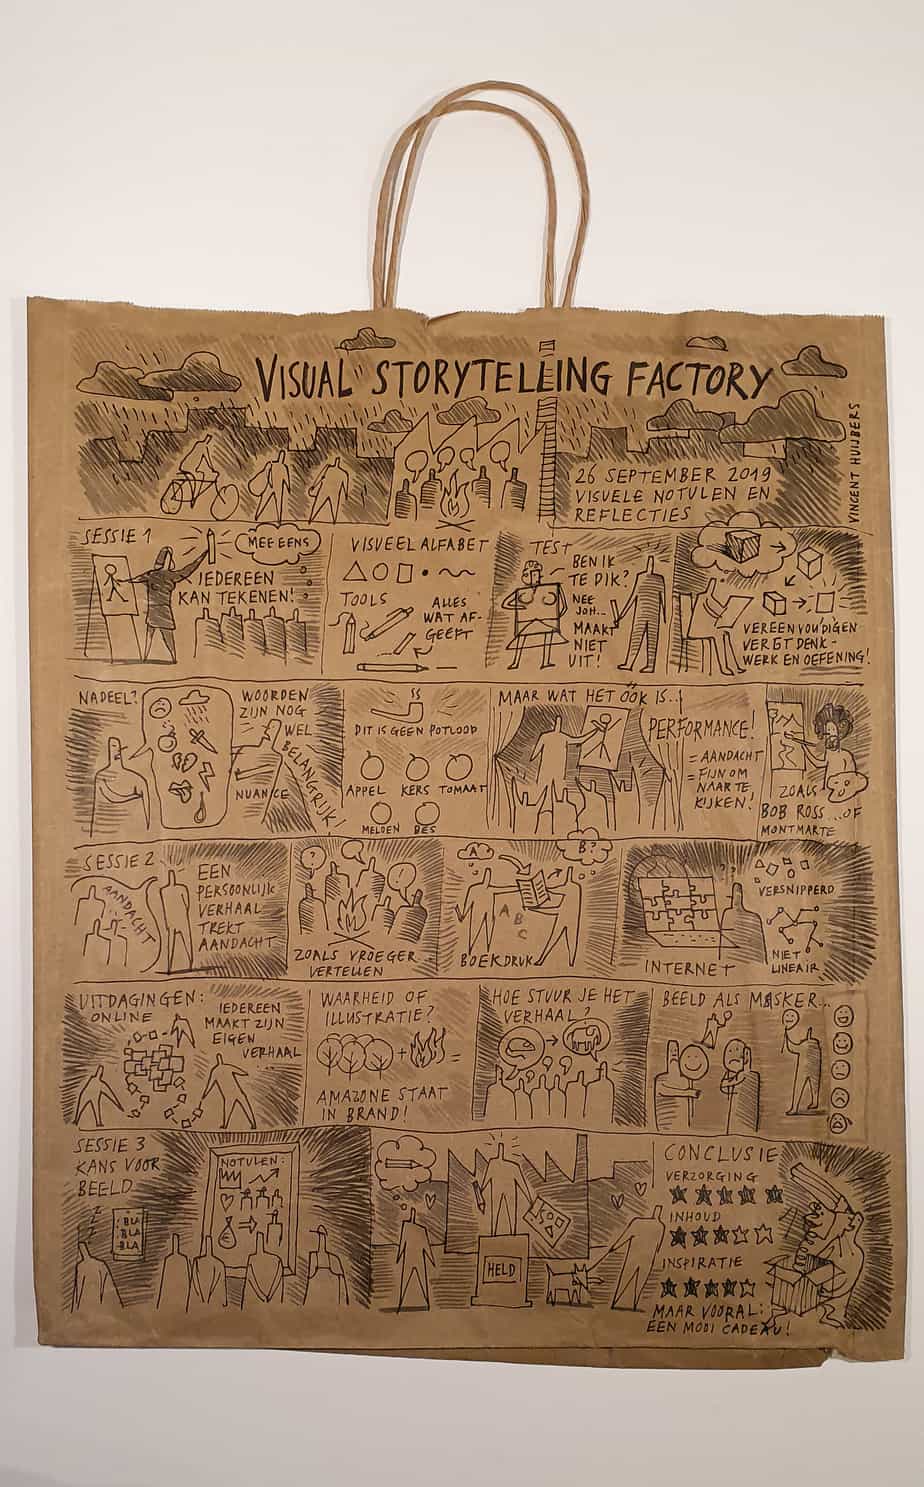 VISUAL STORYTELLING FACTORY
26 SEPTEMBER 2019
VISUELE NOTULEN EN
REFLECTIES
VINCENT HUIJBERS
SESSIE 1
MEE EENS
IEDEREEN
KAN TEKENEN!
VISUEEL ALFABET
TOOLS
ALLES
WAT AF-
GEEFT
TEST
BEN IK
TE DIK?
NEE
JOH...
MAAKT
NIET
UIT!
VEREENVOUDIGEN
VERGT DENK-
WERK EN OEFENING!
NADEEL?
WOORDEN
ZIJN NOG
WEL
BELANGRIJK!
NUANCE
DIT IS GEEN POTLOOD
APPEL KERS TOMAAT
MELOEN BES
MAAR WAT HET ÓÓK IS...
PERFORMANCE!
= AANDACHT
= FIJN OM
NAAR TE
KIJKEN!
ZOALS
BOB ROSS...OF
MONTMARTE
SESSIE 2
AANDACHT
EEN
PERSOONLIJK
VERHAAL
TREKT
AANDACHT
? ! 
ZOALS VROEGER
VERTELLEN
A
B?
A B
C
BOEKDRUK
INTERNET
?
VERSNIPPERD
NIET
LINEAIR
UITDAGINGEN:
ONLINE
IEDEREEN
MAAKT ZIJN
EIGEN
VERHAAL
WAARHEID OF
ILLUSTRATIE?
+ =
AMAZONE STAAT
IN BRAND!
HOE STUUR JE HET
VERHAAL?
BEELD ALS MASKER...
SESSIE 3
KANS VOOR
BEELD
BLA
BLA
BLA
NOTULEN:
HELD
CONCLUSIE
VERZORGING
INHOUD
INSPIRATIE
MAAR VOORAL:
EEN MOOI CADEAU!